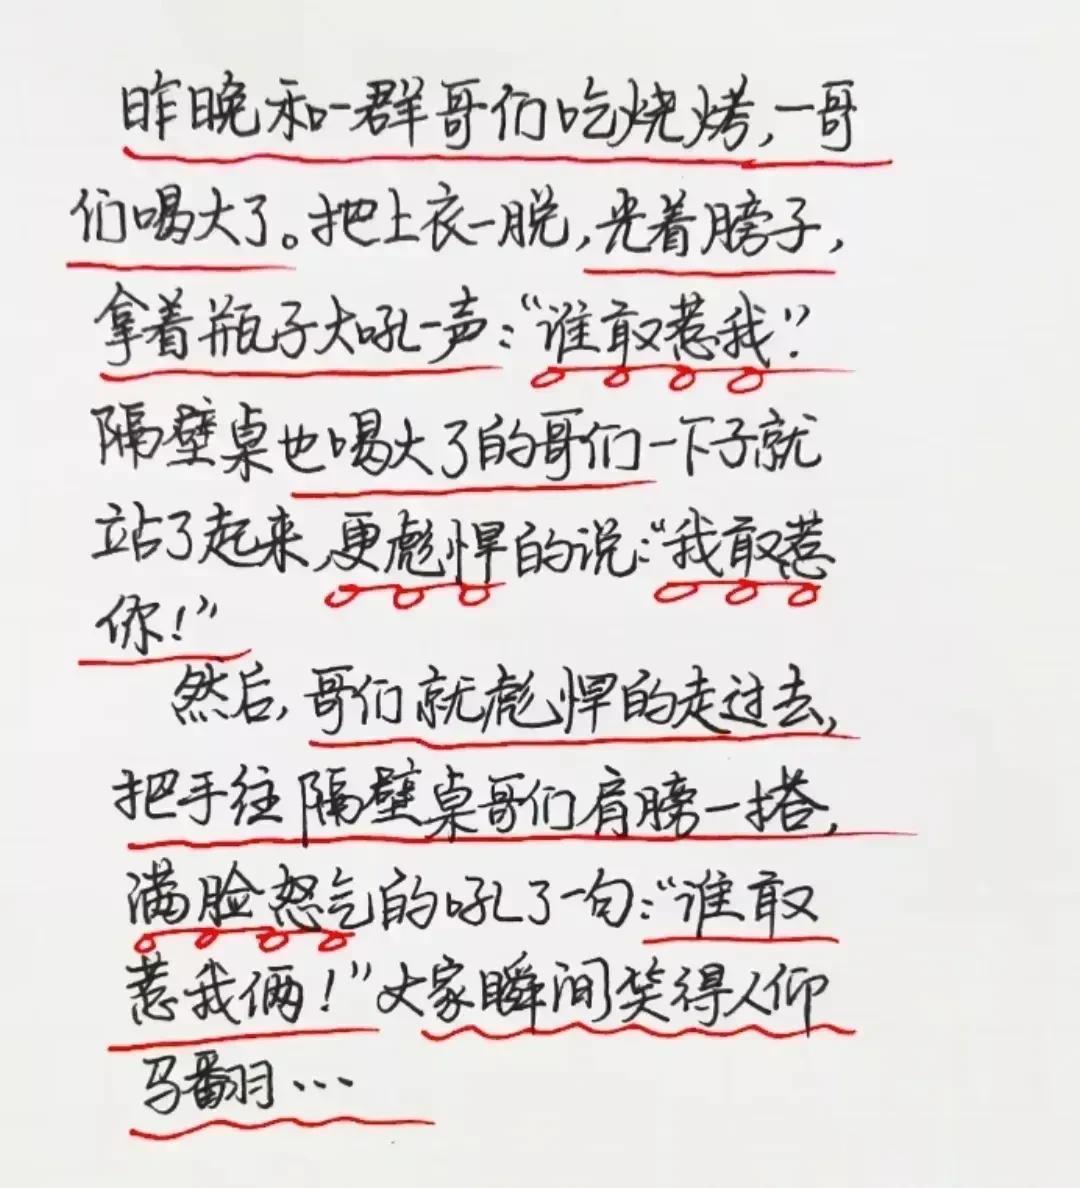 昨晚和一群哥们吃烧烤,一哥
们喝大了。把上衣一脱,光着膀子,
拿着瓶子大吼一声:“谁敢惹我?
隔壁桌也喝大了的哥们一下子就
站了起来,更彪悍的说:“我敢惹
你!”
然后,哥们就彪悍的走过去,
把手往隔壁桌哥们肩膀一搭,
满脸怒气的吼了一句:“谁敢
惹我俩!”大家瞬间笑得人仰
马翻…